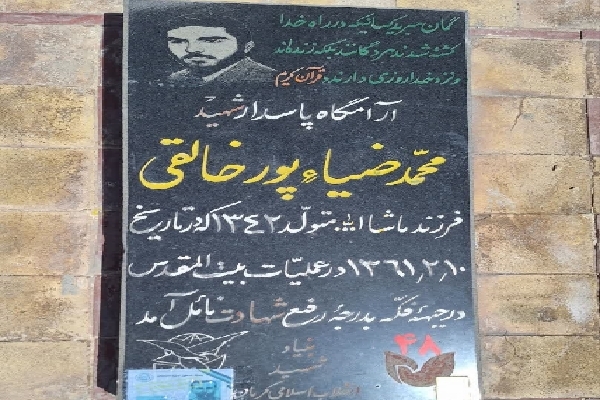 گمان مبرید کسانیکه در راه خدا
کشته شدند مردگانند بلکه زنده‌اند
و نزد خدا روزی دارند قرآن کریم
آرامگاه پاسدار شهید
محمد ضیاء پورخالقی
فرزند ماشاالله متولد ۱۳۴۲ که در تاریخ
۱۳۶۱,۲,۱۰ در عملیات بیت المقدس
در جبهۀ فکه بدرجۀ رفیع شهادت نائل آمد
۴۸
بنیاد
شهید
انقلاب اسلامی کرمان